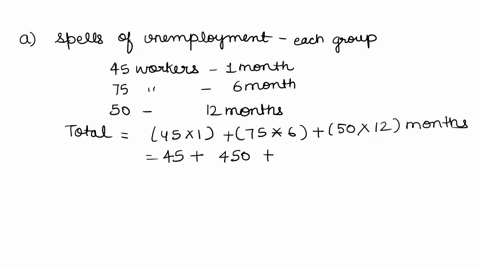 a) Spells of unemployment - each group
45 workers - 1 month
75 " - 6 month
50 - 12 months
Total = (45 x 1) + (75 x 6) + (50 x 12) months
= 45 + 450 +